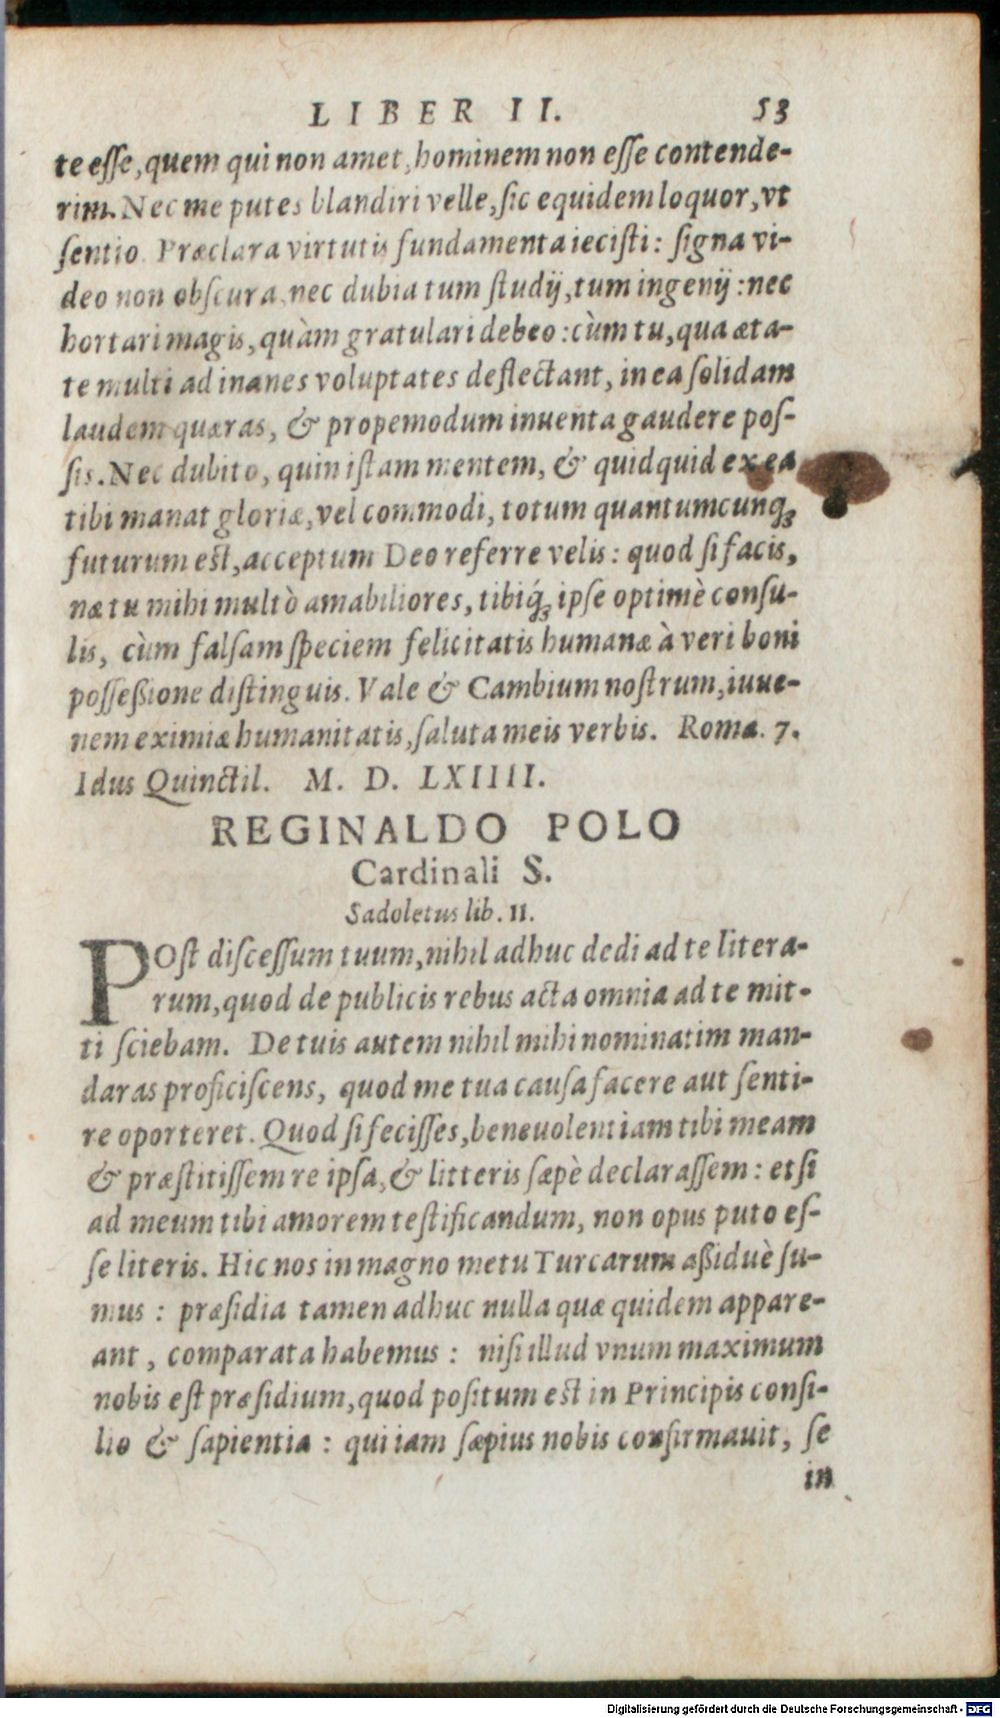 LIBER II. 53
te eſſe, quem qui non amet, hominem non eſſe contende-
rim. Nec me putes blandiri velle, ſic equidem loquor, vt
ſentio. Præclara virtutis fundamenta ieciſti: ſigna vi-
deo non obſcura, nec dubia tum ſtudij, tum ingenij: nec
hortari magis, quàm gratulari debeo: cùm tu, qua æta-
te multi ad inanes voluptates deflectant, in ea ſolidam
laudem quæras, & propemodum inuenta gaudere poſ-
ſis. Nec dubito, quin iſtam mentem, & quidquid ex ea
tibi manat gloriæ, vel commodi, totum quantumcunq́;
futurum est, acceptum Deo referre velis: quod ſi facis,
næ tu mihi multò amabiliores, tibiq́; ipſe optimè conſu-
lis, cùm falſam ſpeciem felicitatis humanæ à veri boni
poſſeßione diſtinguis. Vale & Cambium noſtrum, iuue-
nem eximiæ humanitatis, ſaluta meis verbis. Roma. 7.
Idus Quinctil. M. D. LXIIII.
REGINALDO POLO
Cardinali S.
Sadoletus lib. II.
POſt diſceſſum tuum, nihil adhuc dedi ad te litera-
rum, quod de publicis rebus acta omnia ad te mit-
ti ſciebam. De tuis autem nihil mihi nominatim man-
daras proficiſcens, quod me tua cauſa facere aut ſenti-
re oporteret. Quod ſi feciſſes, beneuolentiam tibi meam
& præſtitiſſem re ipſa, & litteris ſæpè declaraſſem: etſi
ad meum tibi amorem teſtificandum, non opus puto eſ-
ſe literis. Hic nos in magno metu Turcarum aßiduè ſu-
mus: præſidia tamen adhuc nulla quæ quidem appare-
ant, comparata habemus: niſi illud vnum maximum
nobis eſt præſidium, quod poſitum est in Principis conſi-
lio & ſapientia: qui iam ſæpius nobis confirmauit, ſe
in
Digitalisierung gefördert durch die Deutsche Forschungsgemeinschaft - DFG